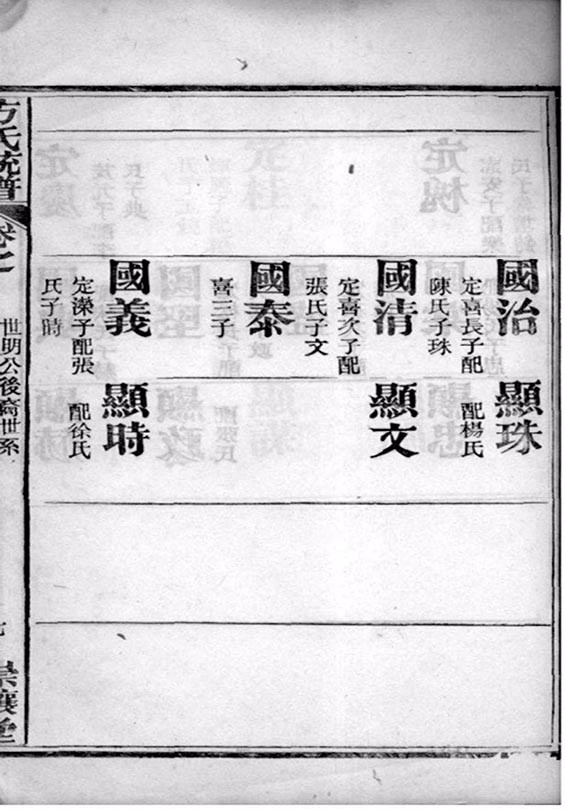 國治
定喜長子配
陳氏子珠
顯珠
配楊氏
國清
定喜次子配
張氏子文
顯文
國泰
喜三子
國義
定濚子配張
氏子時
顯時
配徐氏
方氏統譜
世明公後綺世系